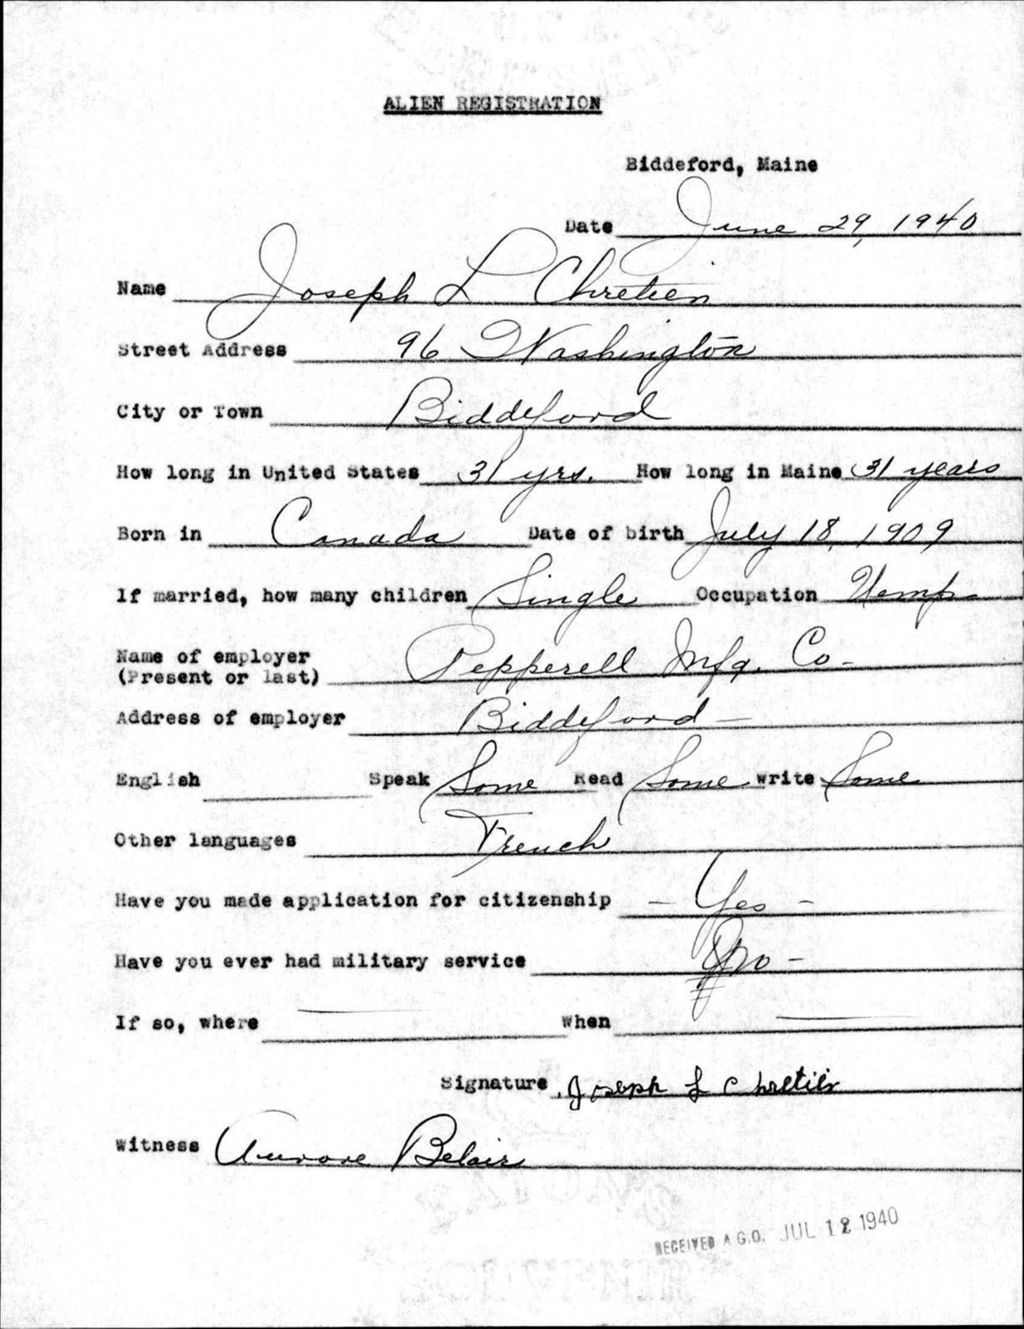 ALIEN REGISTRATION
Biddeford, Maine
Date June 29, 1940
Name Joseph L Chretien
Street Address 96 Washington
City or Town Biddeford
How long in United States 31 yrs. How long in Maine 31 years
Born in Canada Date of birth July 18, 1909
If married, how many children Single Occupation Unemp-
Name of employer
(Present or last) Pepperell Mfg. Co-
Address of employer Biddeford-
English Speak Some Read Some Write Some
Other languages French
Have you made application for citizenship - Yes -
Have you ever had military service No -
If so, where When
Signature Joseph L Chretien
Witness Aurore Belair
RECEIVED A.G.O. JUL 12 1940